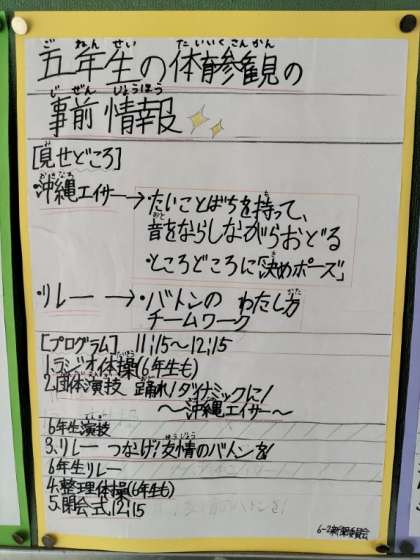 五年生の体育参観の
事前情報
[見せどころ]
・沖縄エイサー→・たいことばちを持って、
音をならしながらおどる
・ところどころに「決めポーズ」
・リレー → ・バトンの わたし方
チームワーク
[プログラム] 11:15〜12:15
1.ラジオ体操(6年生も)
2.団体演技 踊れ!ダイナミックに!
〜沖縄エイサー〜
6年生演技
3.リレー つなげ!友情のバトンを!
6年生リレー
4.整理体操(6年生も)
5.閉会式 12:15
6-2新聞委員会